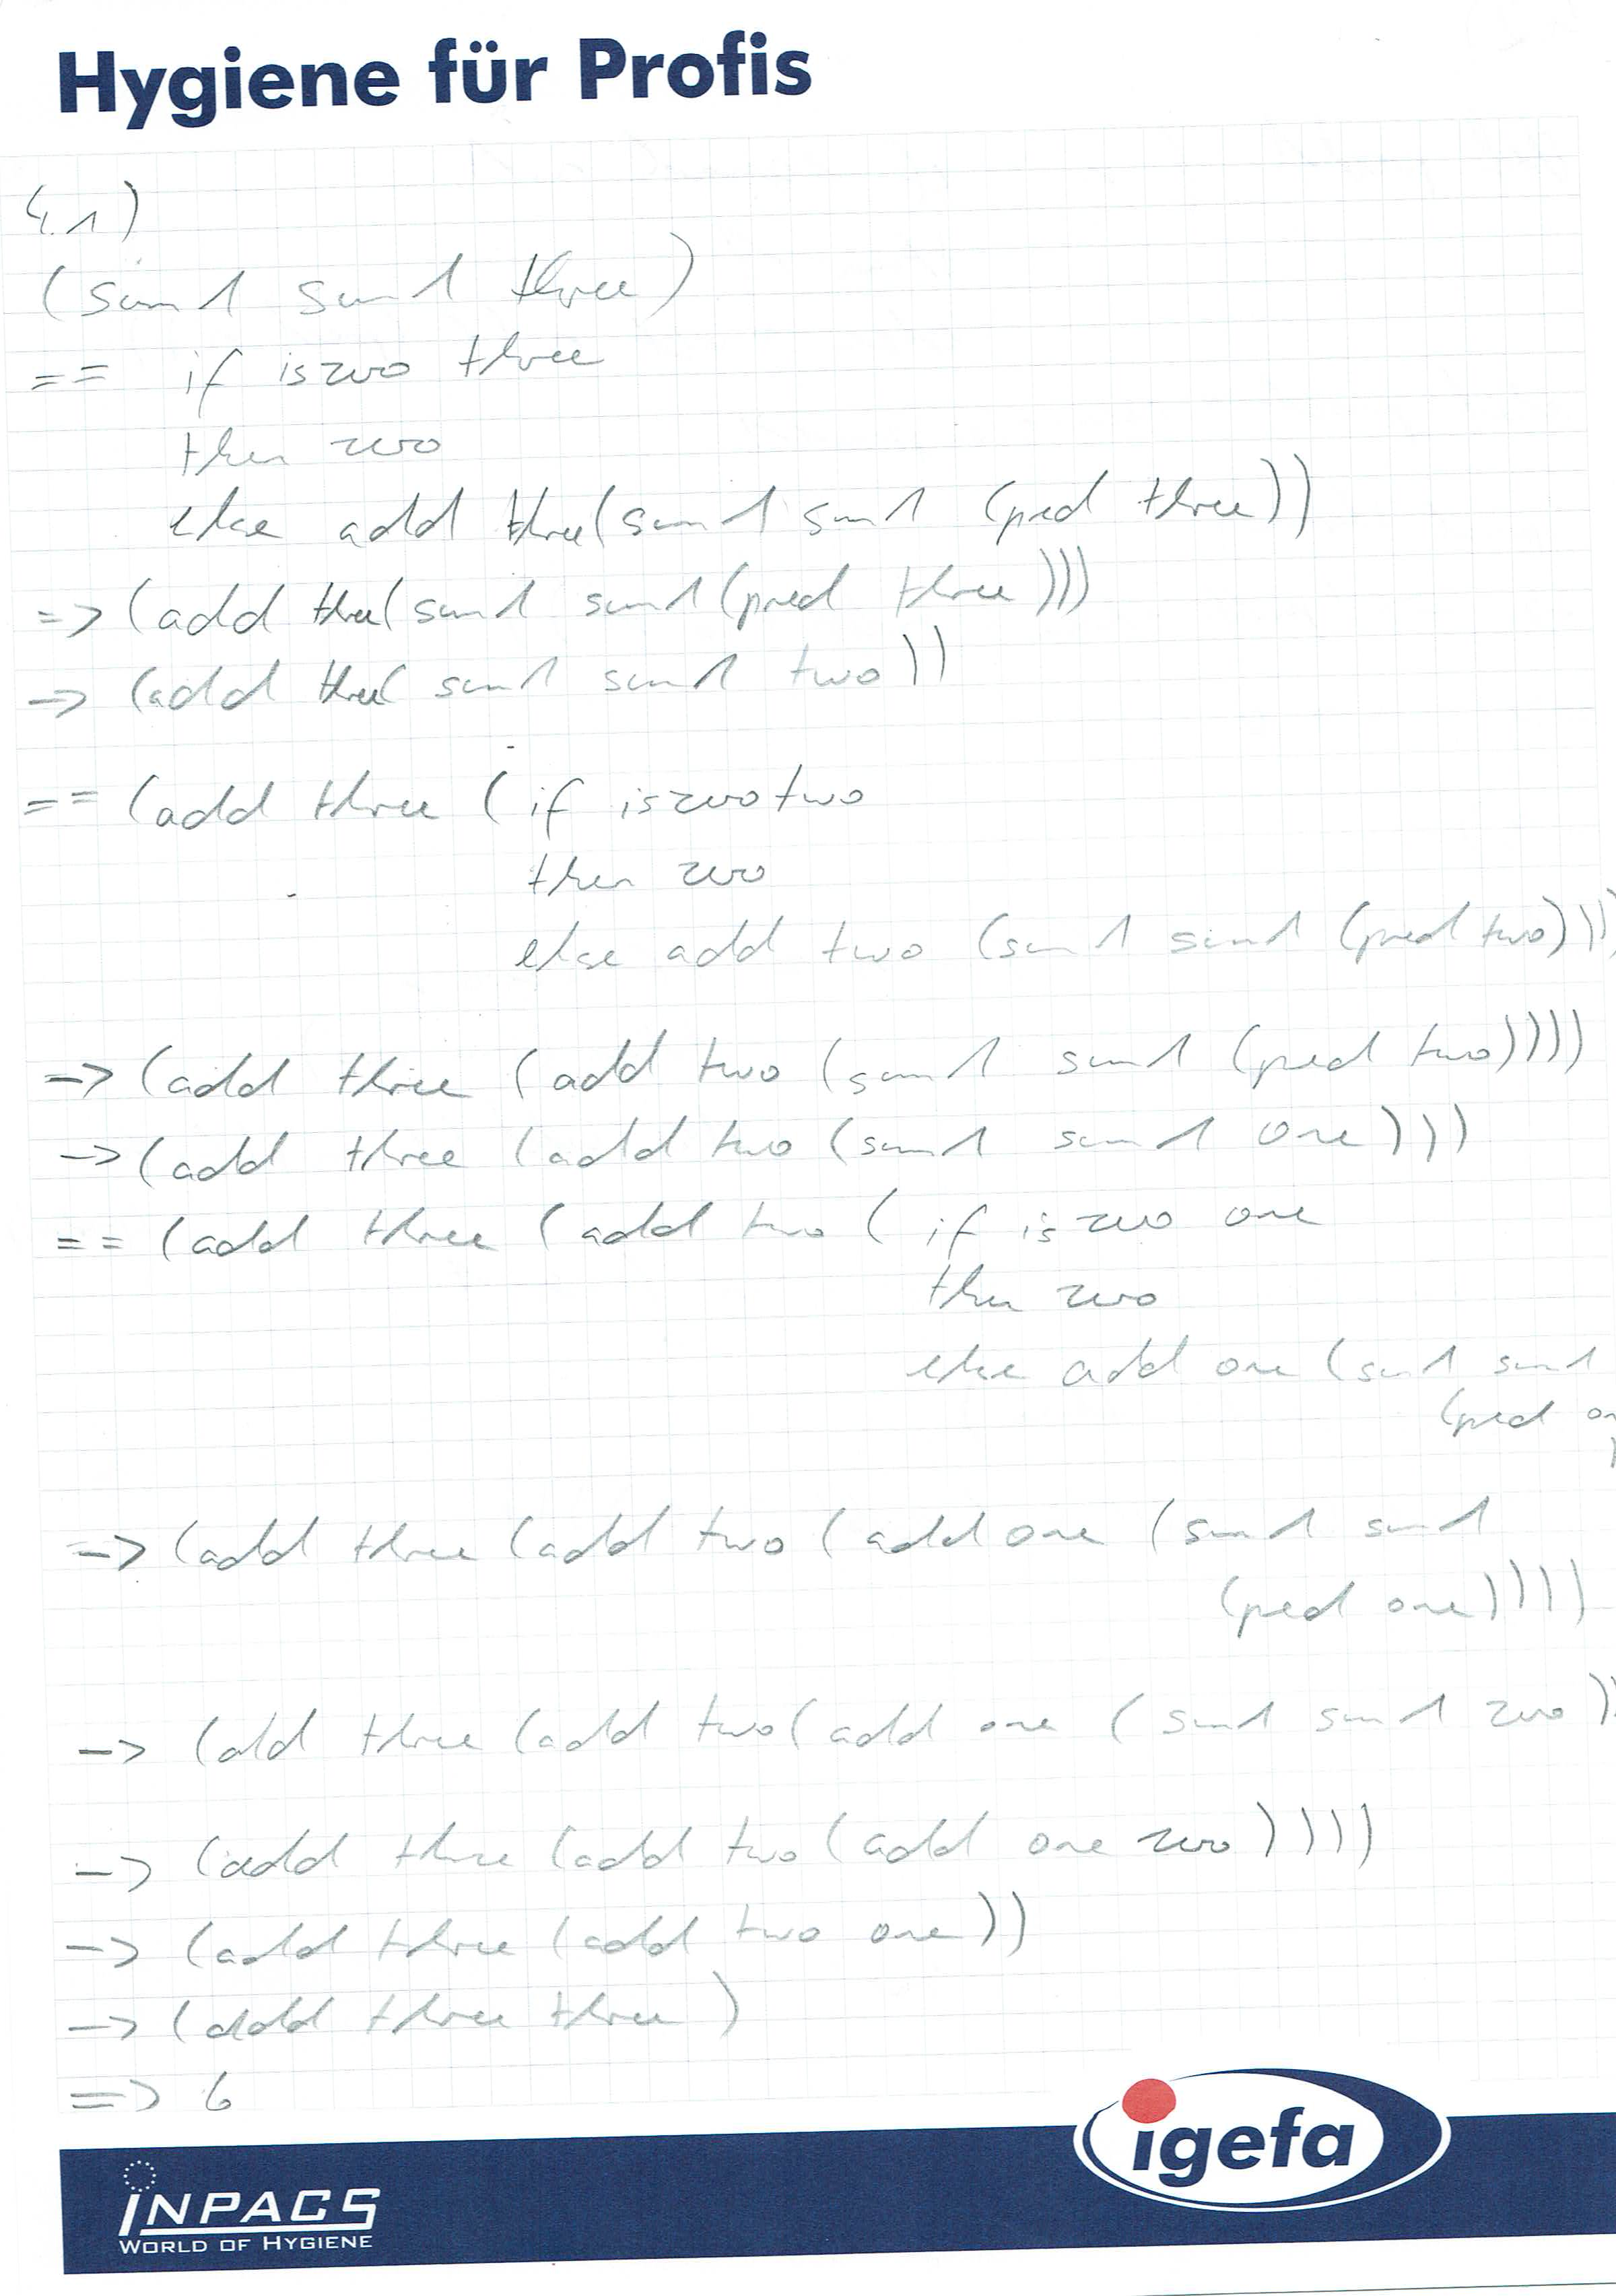 Hygiene für Profis
4.1)
(sum1 sum1 three)
== if iszero three
then zero
else add three(sum1 sum1 (pred three))
=> (add three(sum1 sum1 (pred three)))
-> (add three( sum1 sum1 two))
== (add three ( if iszero two
then zero
else add two (sum1 sum1 (pred two)))
-> (add three (add two (sum1 sum1 (pred two))))
-> (add three (add two (sum1 sum1 one)))
== (add three (add two ( if iszero one
then zero
else add one (sum1 sum1
(pred
-> (add three (add two (add one (sum1 sum1
(pred one))))
-> (add three (add two (add one (sum1 sum1 zero))
-> (add three (add two (add one zero))))
-> (add three (add two one))
-> (add three three)
=> 6
igefa
INPACS
WORLD OF HYGIENE